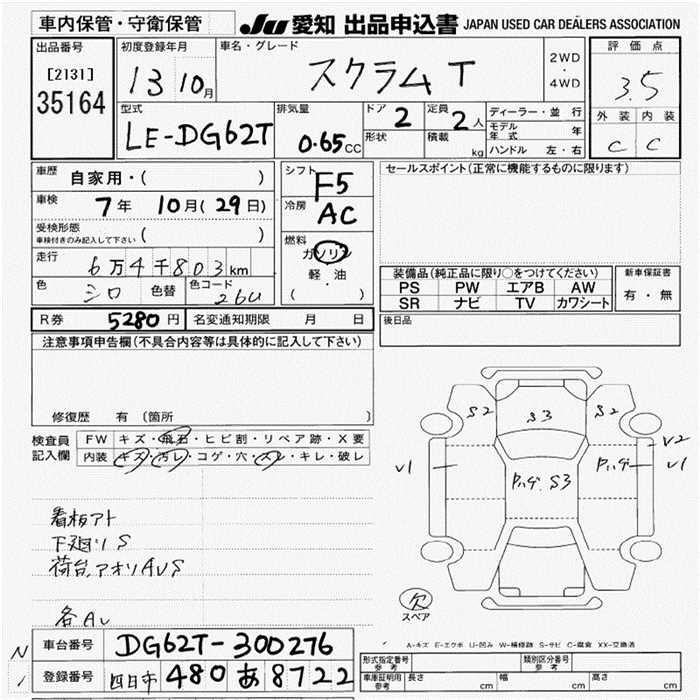 車内保管・守衛保管
JU 愛知 出品申込書 JAPAN USED CAR DEALERS ASSOCIATION
出品番号
[2131]
35164
初度登録年月
13 10月
車名・グレード
スクラム T
2WD
・
4WD
評価点
3.5
外装 内装
C C
型式
LE-DG62T
排気量
0.65cc
ドア 2
形状
定員 2人
積載 kg
ディーラー・並行
モデル年式 年
ハンドル 左・右
車歴 自家用・( )
車検 7年 10月(29日)
受検形態
車検付きのみ記入して下さい ( )
走行 6万4千803km
色 シロ 色替 色コード 26U
シフト F5
冷房 AC
燃料
ガソリン
軽油
( )
セールスポイント(正常に機能するものに限ります)
装備品(純正品に限り○をつけてください)
PS PW エアB AW
SR ナビ TV カワシート
新車保証書
有・無
R券 5280円 名変通知期限 月 日
後日品
注意事項申告欄(不具合内容等は具体的に記入して下さい)
修復歴 有 (箇所
検査員
記入欄
FW キズ・飛石・ヒビ割・リペア跡・X要
内装 キズ・汚レ・コゲ・穴・スレ・キレ・破レ
看板アト
下廻りS
荷台、アオリAUS
各AU
S2 S3 S2
V2
V1 V1
S3
欠
スペア
A-キズ E-エクボ U-凹み W-補修跡 S-サビ C-腐食 XX-交換済
N
車台番号 DG62T-300276
登録番号 四日市 480 あ 8722
形式指定番号
参考
類別区分番号
参考
車庫証明用
参考
長さ cm 幅 cm 高さ cm